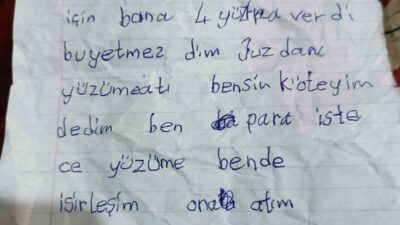 için bana 4 yüzlira verdi
buyetmez dim Juzdanı
yüzümeatı bensin kioteyim
dedim ben para iste
ce yüzüme bende
isirleşim ona atım